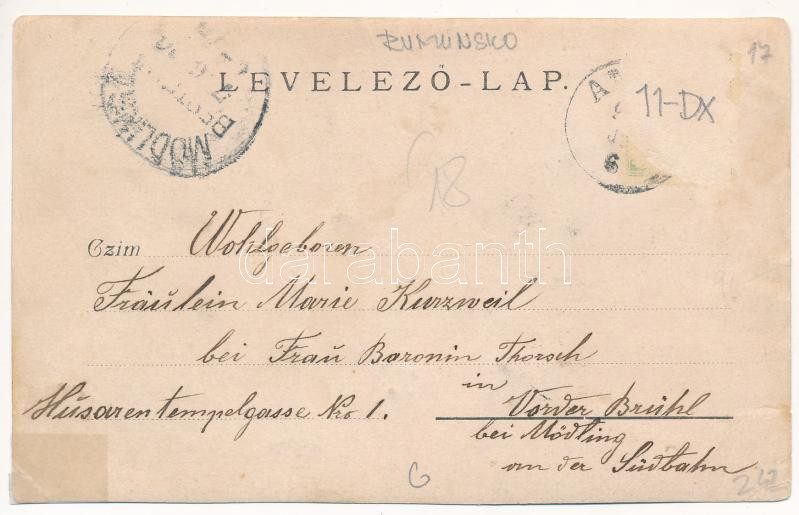 RUMUNSKO
17
LEVELEZŐ-LAP.
11-DX
MÖDLING
18
Czim Wohlgeboren
darabanth
Fräulein Marie Kurzweil
bei Frau Baronin Thorsch
in
Husarentempelgasse Nro 1. Vorder Brühl
bei Mödling
an der Südbahn
G